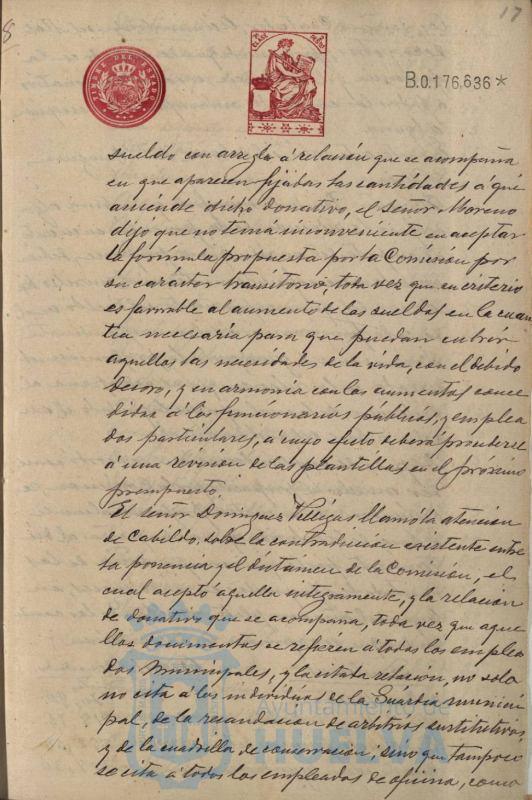 17
8
TIMBRE DEL ESTADO
B.0.176.636*
sueldo con arreglo á relación que se acompaña
en que aparecen fijadas las cantidades á que
asciende dicho donativo, el señor Moreno
dijo que no tenia inconveniente en aceptar
la fórmula propuesta por la Comisión por
su carácter transitorio, toda vez que su criterio
es favorable al aumento de los sueldos en la cuan
tia necesaria para que puedan cubrir
aquellos las necesidades de la vida, con el debido
decoro, y en armonia con los aumentos conce
didos á los funcionarios públicos, y emplea
dos particulares, á cuyo efecto deberá procederse
á una revisión de las plantillas en el próximo
presupuesto.
El señor Dominguez Villegas llamó la atencion
de Cabildo, sobre la contradicion existente entre
la ponencia y el dictámen de la Comisión, el
cual aceptó aquella integramente, y la relacion
de donativo que se acompaña, toda vez que aque
llos documentos se refieren á todos los emplea
dos municipales, y la citada relación, no solo
no cita á los individuos de la Guardia munici
pal, de la recaudacion de arbitrios sustitutivos
y de la cuadrilla de conservacion, sino que tampoco
se cita á todos los empleados de oficina, como
Ayuntamiento de
HUELVA